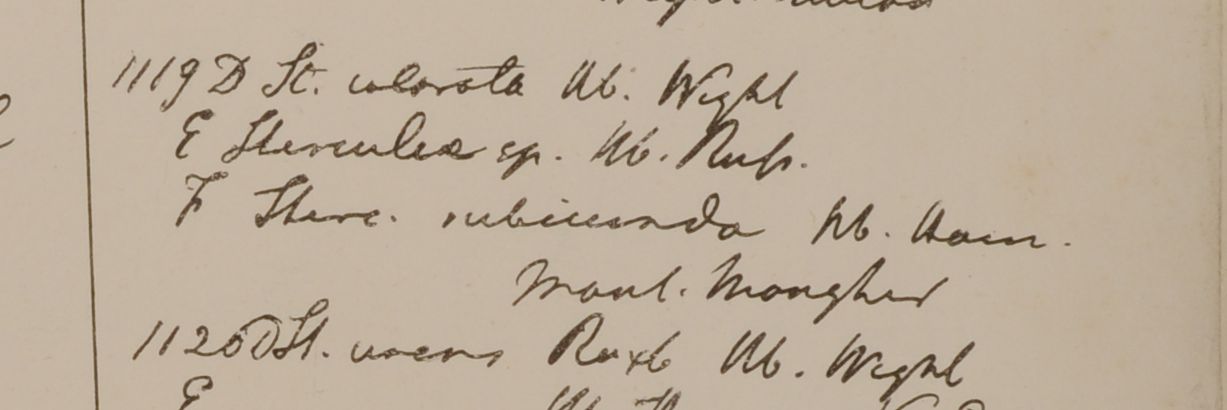 1119 D St. colorata Hb. Wight
E Sterculea sp. Hb. Russ.
F Sterc. rubicunda Hb. Ham.
Mont. Mongher
1120 D St. urens Roxb Hb. Wight
E Hb.